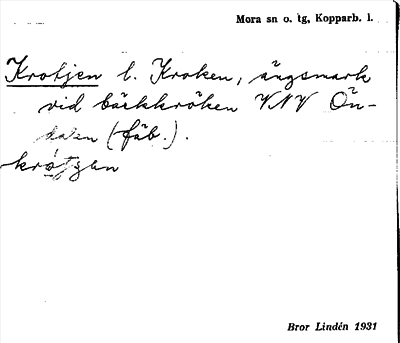 Mora sn o. tg, Kopparb. l.
Krokjen l. Kroken, ängsmark
vid bäckkröken VNV Ön-
dalen (fäb.).
Bror Lindén 1931